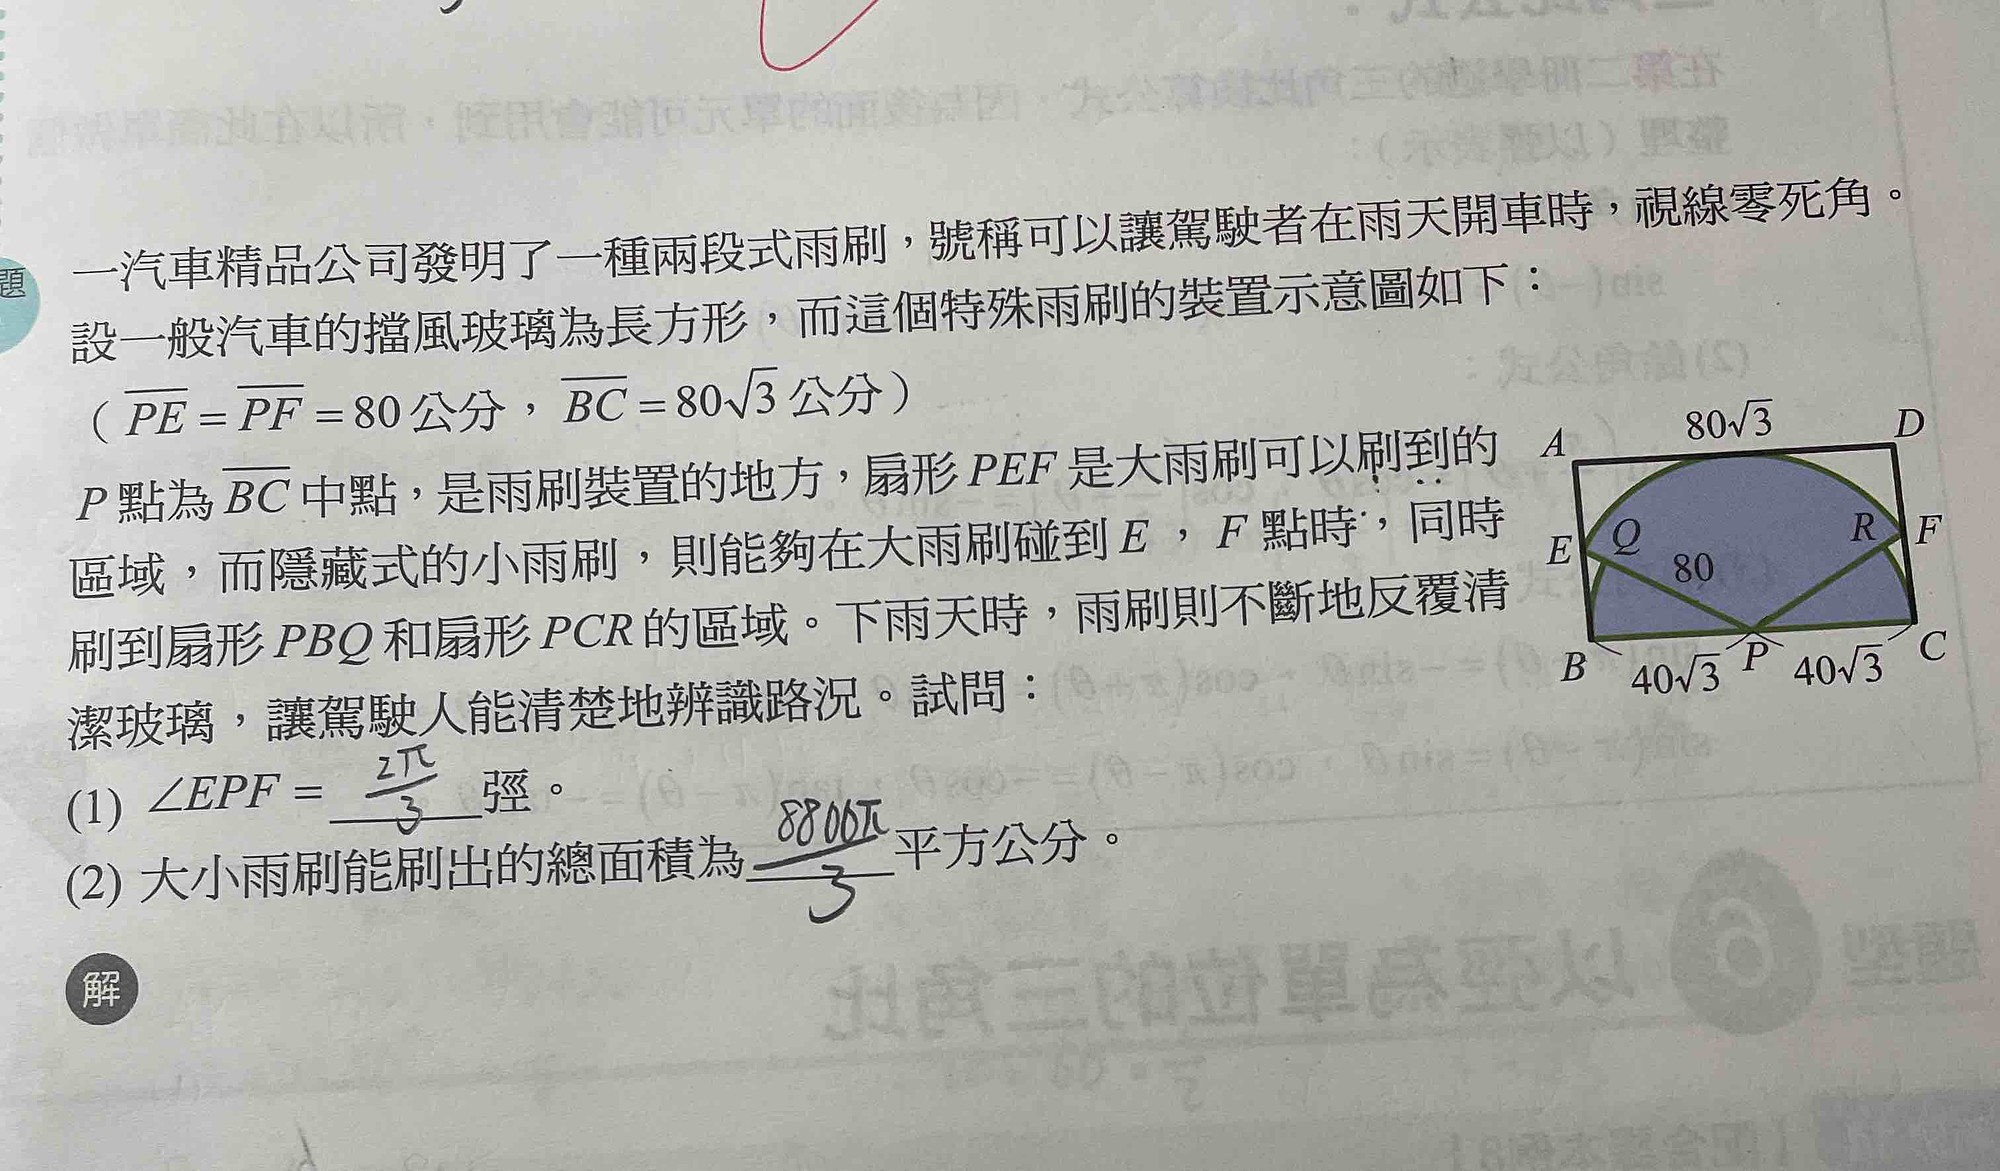 一汽車精品公司發明了一種兩段式雨刷，號稱可以讓駕駛者在雨天開車時，視線零死角。
題
設一般汽車的擋風玻璃為長方形，而這個特殊雨刷的裝置示意圖如下：
（PE = PF = 80公分，BC = 80√3公分）
P點為BC中點，是雨刷裝置的地方，扇形PEF是大雨刷可以刷到的
區域，而隱藏式的小雨刷，則能夠在大雨刷碰到E，F點時，同時
刷到扇形PBQ和扇形PCR的區域。下雨天時，雨刷則不斷地反覆清
潔玻璃，讓駕駛人能清楚地辨識路況。試問：
A 80√3 D
E Q 80 R F
B 40√3 P 40√3 C
(1) ∠EPF = 2π/3 弳。
(2) 大小雨刷能刷出的總面積為 8800π/3 平方公分。
解